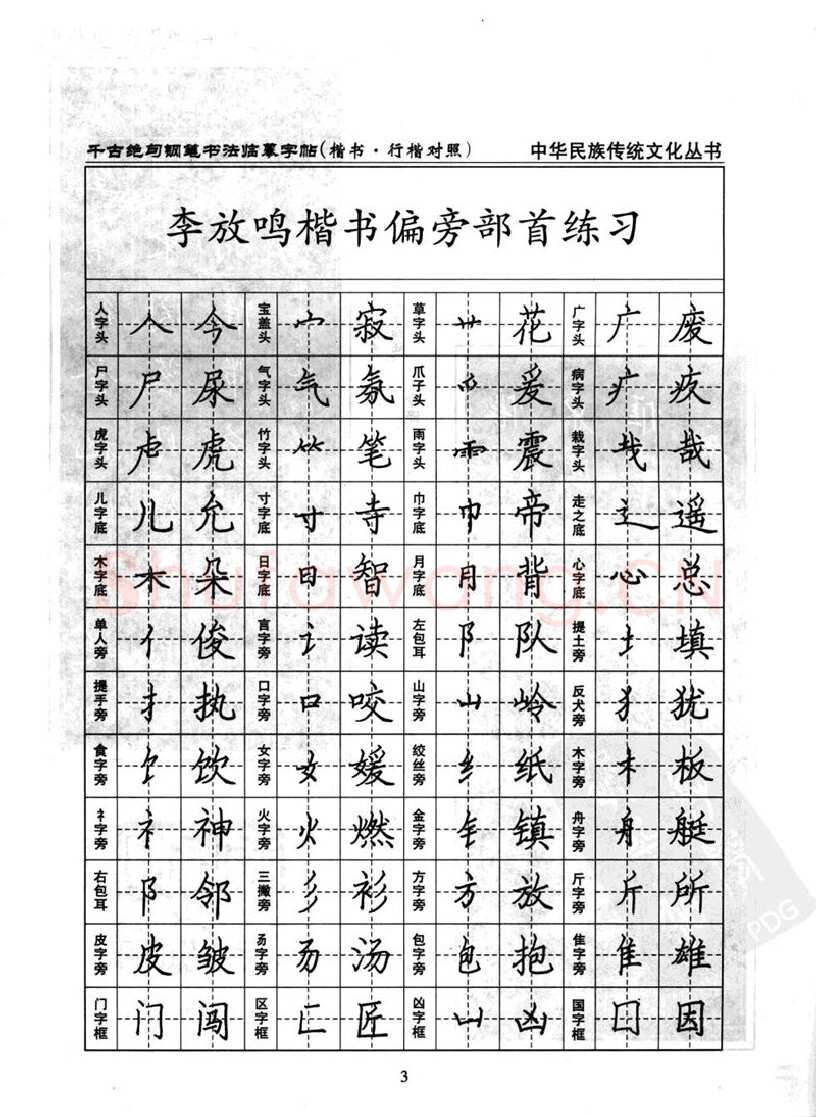 千古绝句钢笔书法临摹字帖(楷书·行楷对照) 中华民族传统文化丛书
李放鸣楷书偏旁部首练习
人字头 人 今 宝盖头 宀 寂 草字头 艹 花 广字头 广 废
尸字头 尸 尿 气字头 气 氛 爪子头 爫 爰 病字头 疒 疚
虎字头 虍 虎 竹字头 𥫗 笔 雨字头 雨 震 栽字头 𢦏 哉
儿字底 儿 允 寸字底 寸 寺 巾字底 巾 帝 走之底 辶 遥
木字底 木 朵 日字底 日 智 月字底 月 背 心字底 心 总
单人旁 亻 俊 言字旁 讠 读 左包耳 阝 队 提土旁 土 填
提手旁 扌 执 口字旁 口 咬 山字旁 山 岭 反犬旁 犭 犹
食字旁 饣 饮 女字旁 女 媛 绞丝旁 纟 纸 木字旁 木 板
礻字旁 礻 神 火字旁 火 燃 金字旁 钅 镇 舟字旁 舟 艇
右包耳 阝 邻 三撇旁 彡 衫 方字旁 方 放 斤字旁 斤 所
皮字旁 皮 皱 昜字旁 汤 包字旁 包 抱 隹字旁 隹 雄
门字框 门 闯 区字框 匚 匠 凶字框 凵 凶 国字框 囗 因
Shufawang.CN
PDG
3